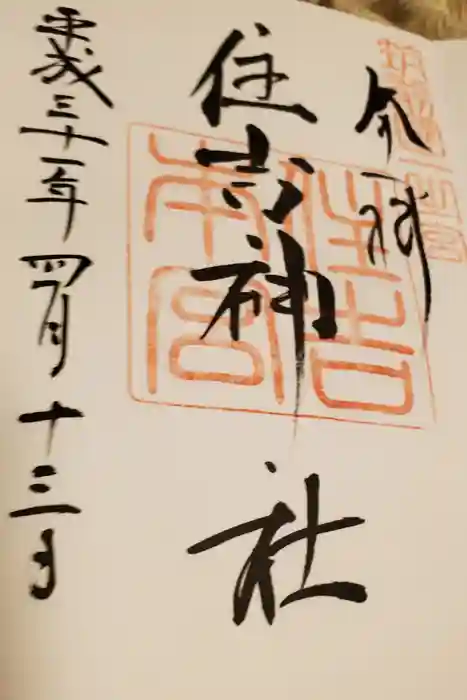 奉拝
住吉神社
住吉本宮
平成三十一年四月十三日